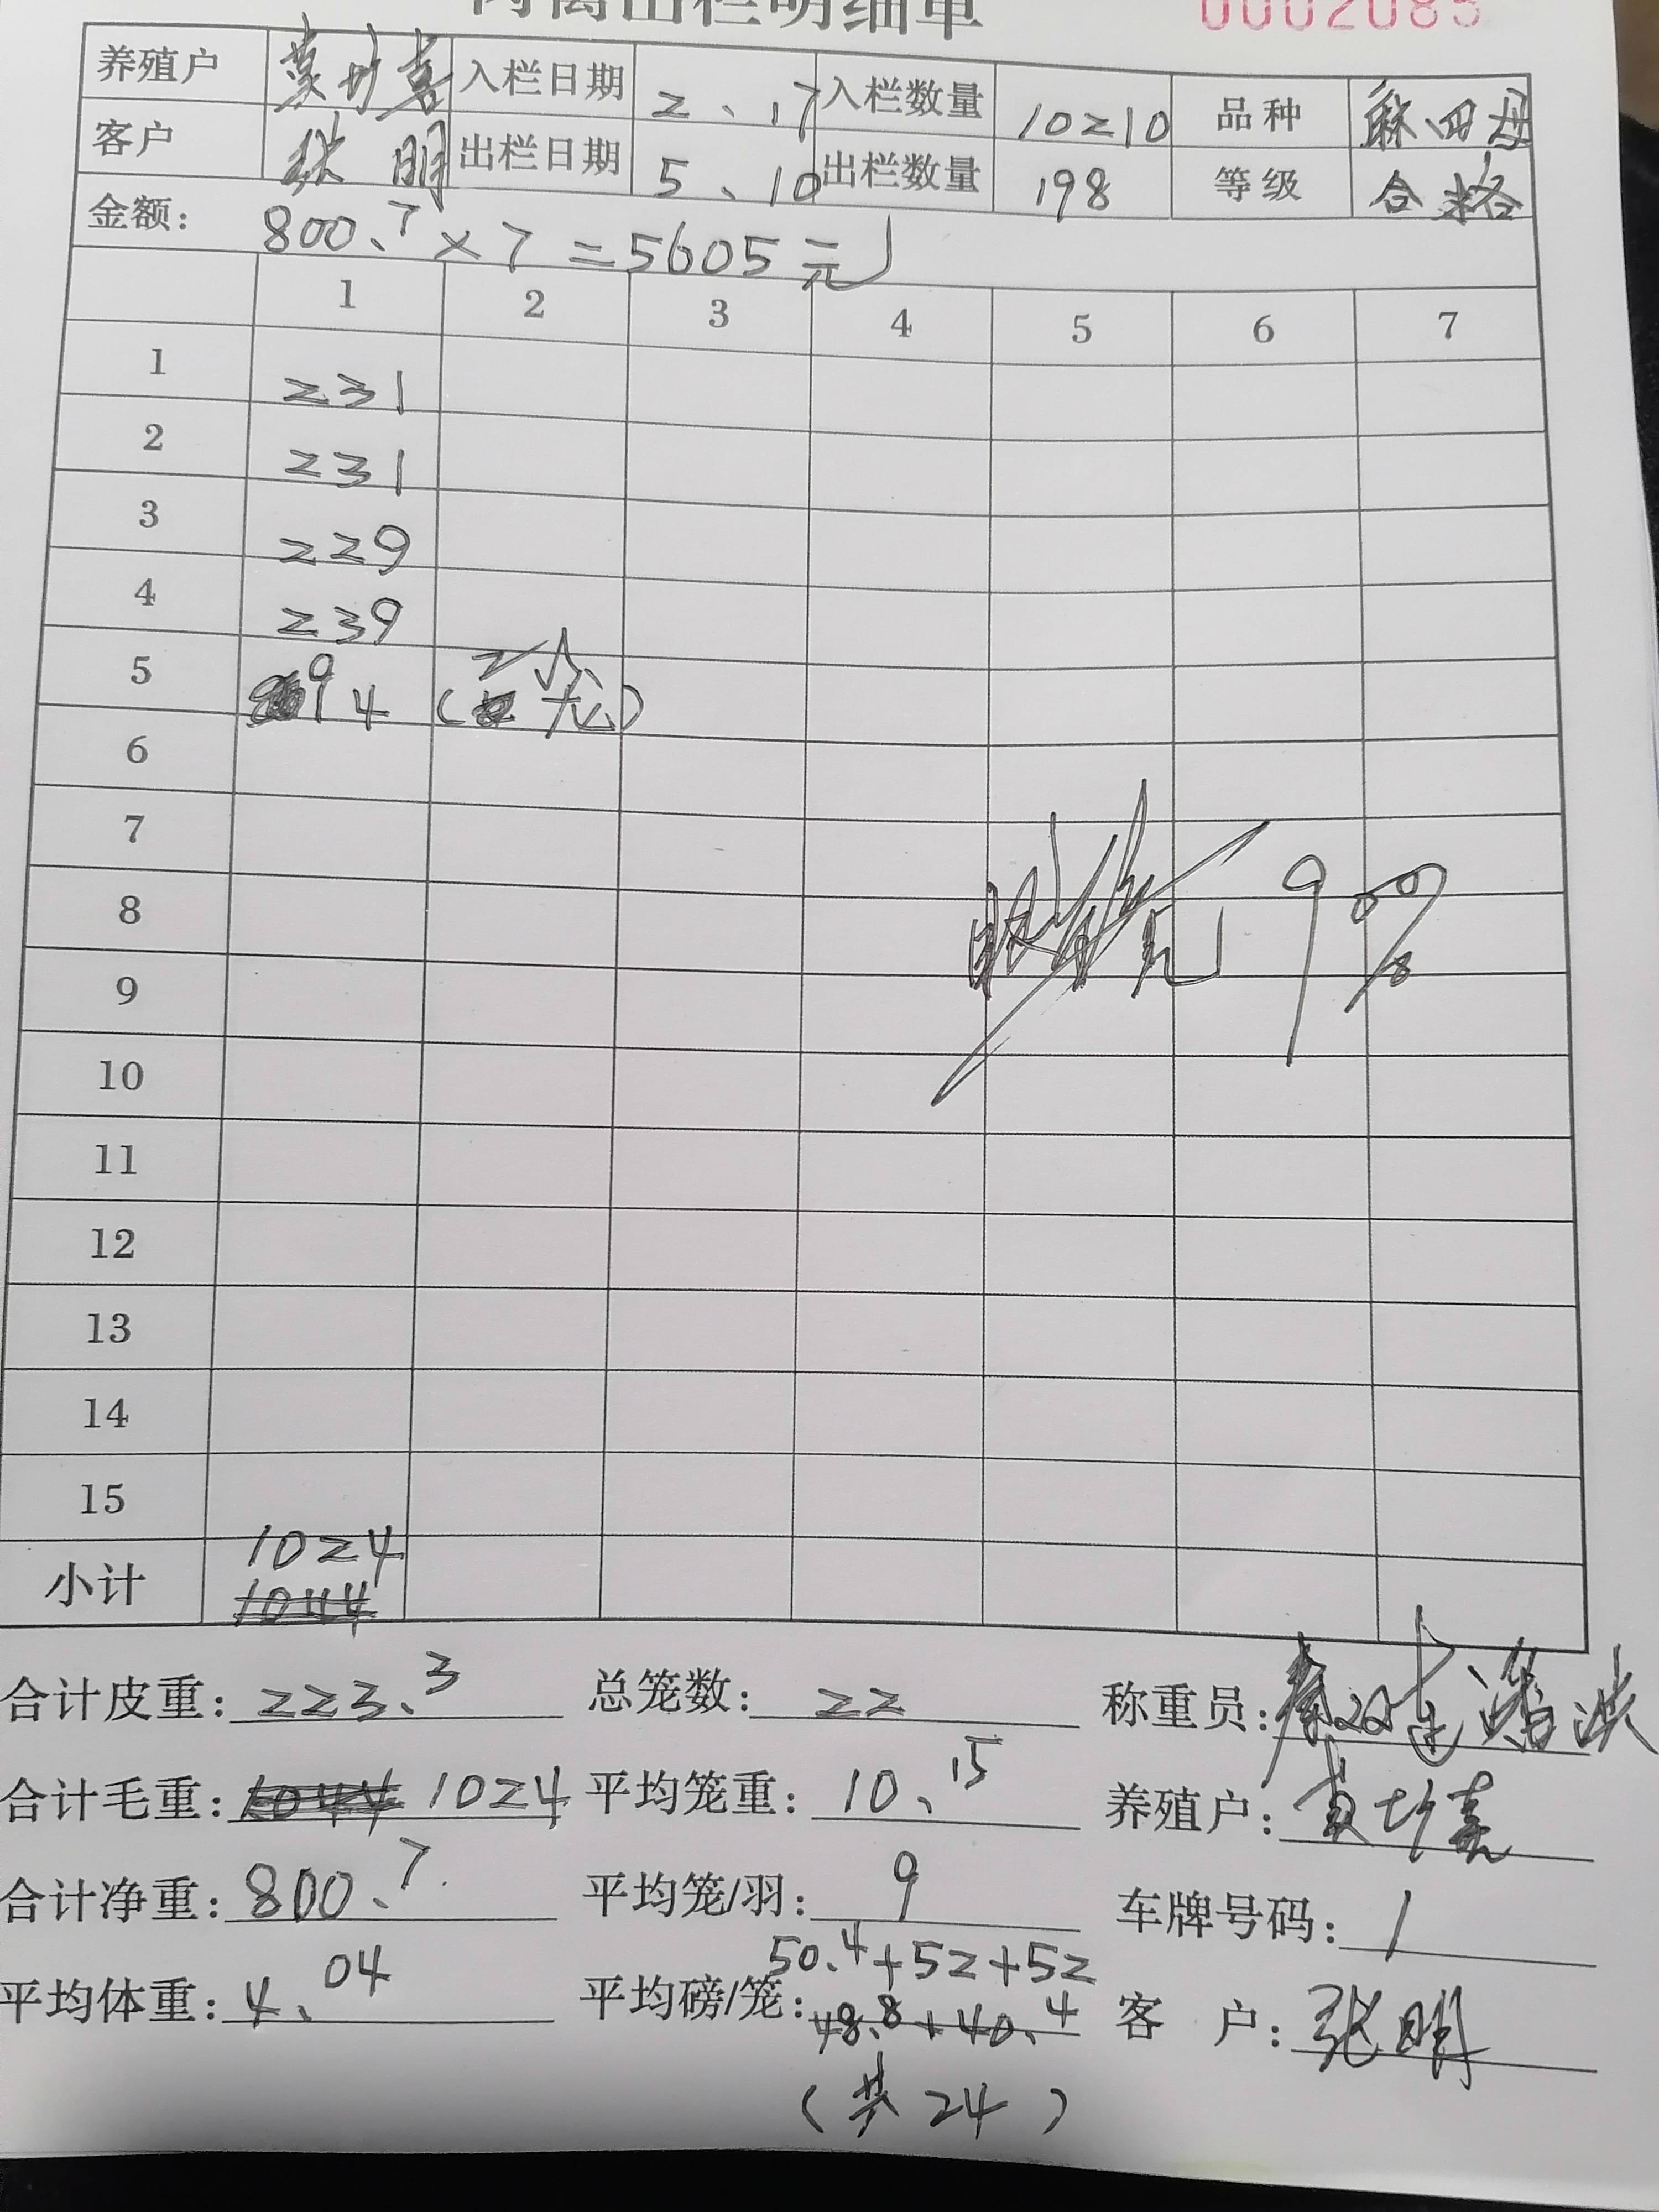 肉禽出栏明细单 0002085
养殖户 入栏日期 2、17 入栏数量 10210 品种 麻四母
客户 张明 出栏日期 5、10 出栏数量 198 等级 合格
金额: 800.7×7=5605元
1 2 3 4 5 6 7
1 231
2 231
3 229
4 239
5 94 (2个笼)
6
7
8
9
10
11
12
13
14
15
小计 1024
1044
合计皮重: 223.3 总笼数: 22 称重员:
合计毛重: 1044 1024 平均笼重: 10.15 养殖户:
合计净重: 800.7 平均笼/羽: 9 车牌号码: 1
平均体重: 4.04 平均磅/笼: 50.4+52+52
48.8+40.4 客 户: 张明
(共24)